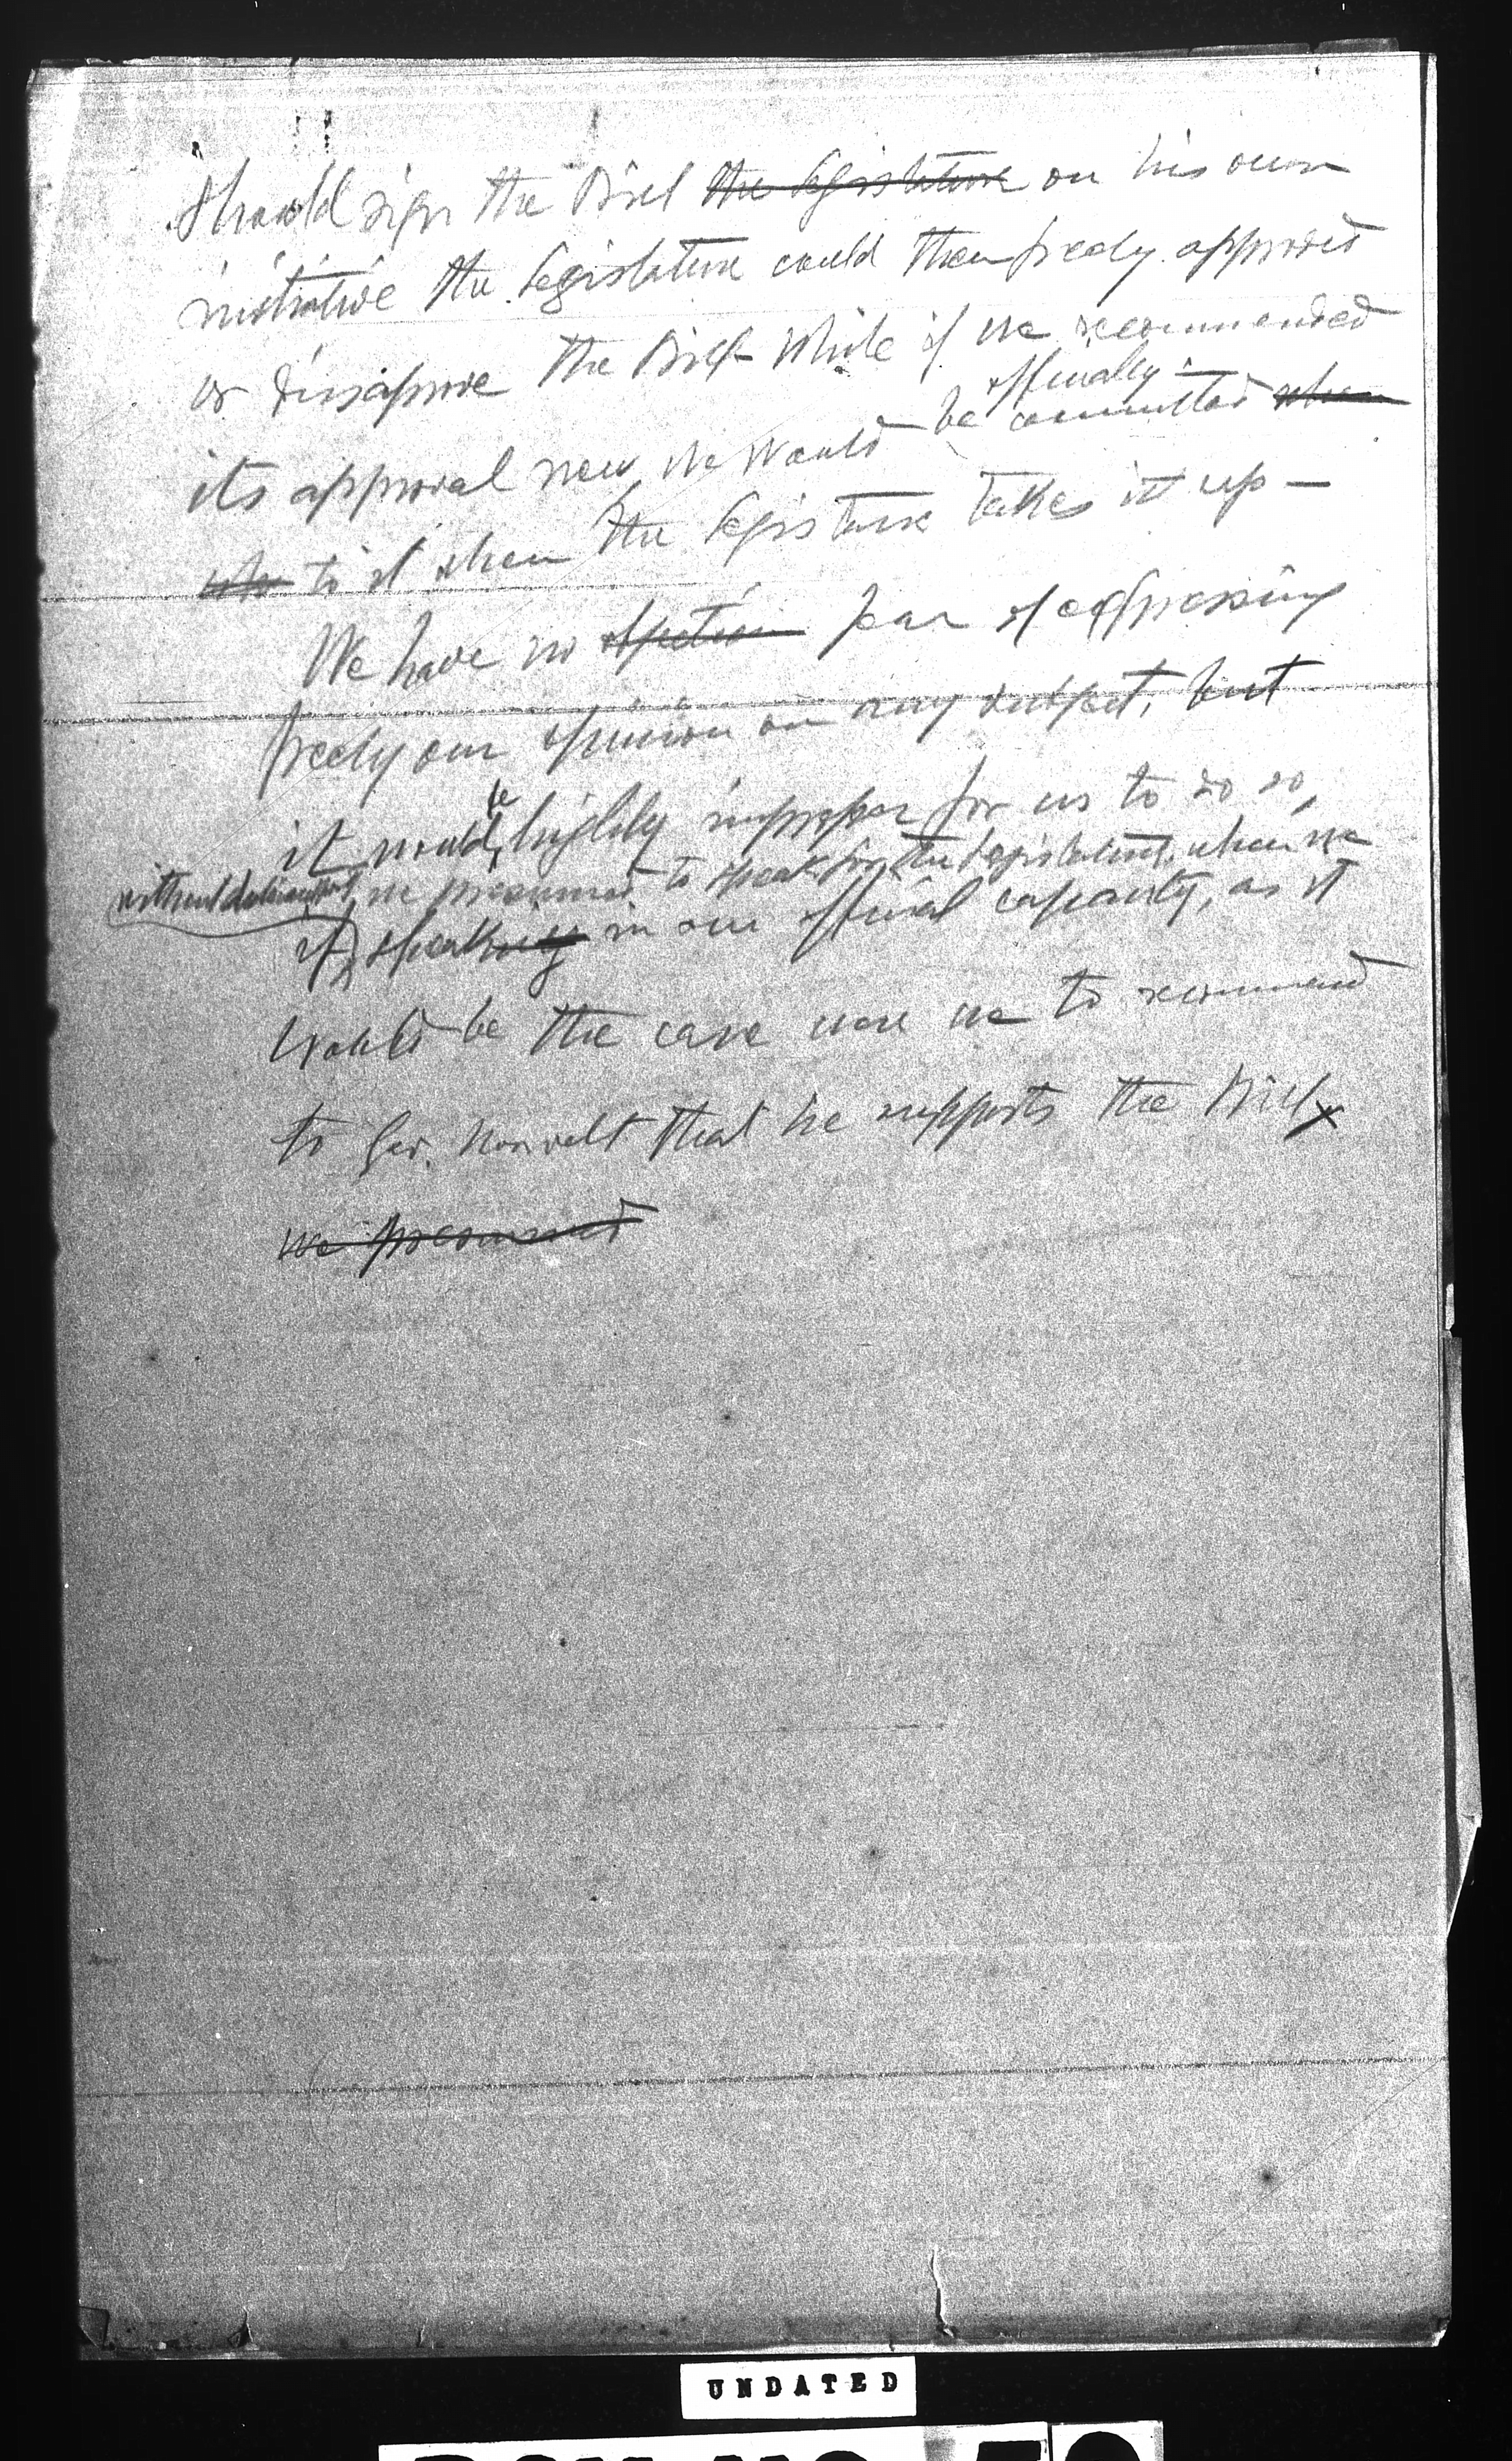 should sign the Bill the legislature on his own
initiative the legislature could then freely approved
or dissaprove the Bill while if we recommended
officially
its approval now, we would be committed when
to it when the legislature takes it up —
We have no objection fear of expressing
freely our opinion on any subject, but
be
it would highly improper for us to do so,
we presumed to speak for the Legislature, when we
if speaking in our official capacity, as it
would be the case were we to recommend
to Gov. that he supports the Bill
we presumed
UNDATED